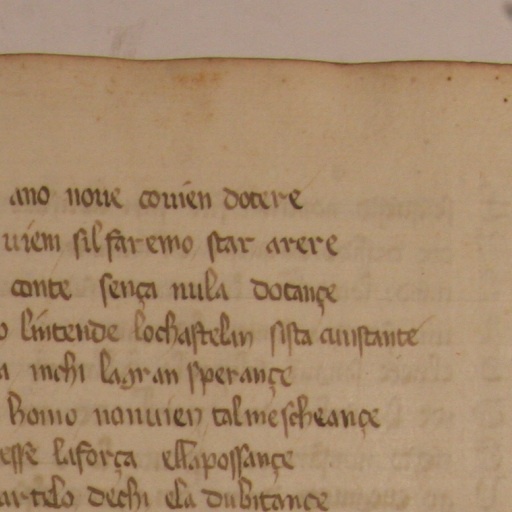 ano noue couien dotere
uiem sil faremo star arere
conte sença nula dotançe
lintende lochastelan sista cunstante
inchi lagran sperançe
homo nonuien tal mescheançe
esse laforça ellapossançe
artelo dechi ela dubitançe